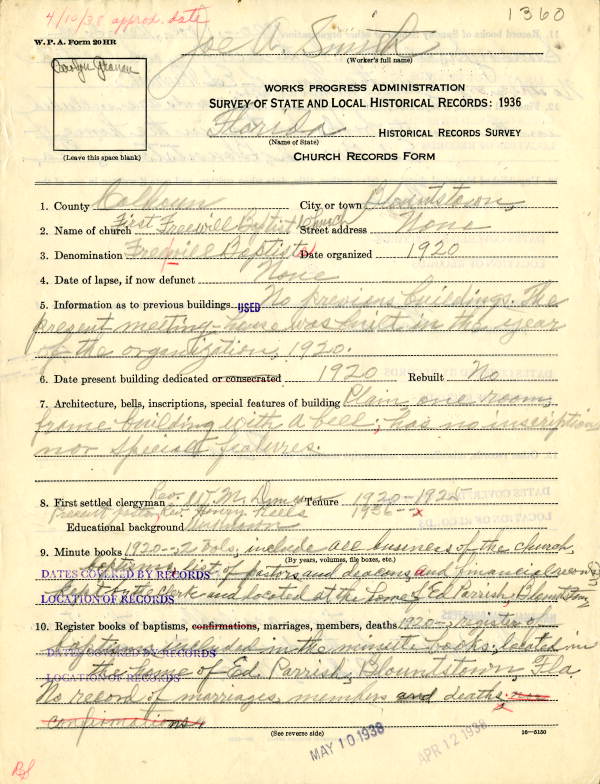 4/10/38 approd. date
1360
W. P. A. Form 20 HR
Joe A. Smith
(Worker's full name)
WORKS PROGRESS ADMINISTRATION
SURVEY OF STATE AND LOCAL HISTORICAL RECORDS: 1936
Florida HISTORICAL RECORDS SURVEY
(Name of State)
(Leave this space blank)
CHURCH RECORDS FORM
1. County Calhoun City or town Blountstown,
2. Name of church First Freewill Baptist Church Street address None
3. Denomination Freewill Baptist Date organized 1920
4. Date of lapse, if now defunct None
5. Information as to previous buildings USED No previous buildings. The
present meeting-house was built in the year
of the organization, 1920.
6. Date present building dedicated or consecrated 1920 Rebuilt No
7. Architecture, bells, inscriptions, special features of building Plain, one room,
frame building with a bell; has no inscription
nor special features.
8. First settled clergyman Rev. W. M. Tenure 1920-1925
Present pastor, Rev. Henry 1936-x
Educational background Unknown
9. Minute books 1920- 2 Vols., include all business of the church,
(By years, volumes, file boxes, etc.)
baptisms, list of pastors and deacons, and financial record
DATES COVERED BY RECORDS
clerk and located at the home of Ed Parrish, Blountstown,
LOCATION OF RECORDS
10. Register books of baptisms, confirmations, marriages, members, deaths 1920-, register of
baptisms included in the minute books, located in
DATES COVERED BY RECORDS
the home of Ed. Parrish, Blountstown, Fla
LOCATION OF RECORDS
No record of marriages, members and deaths
confirmations
(See reverse side)
16—5150
MAY 10 1938
APR 12 1938